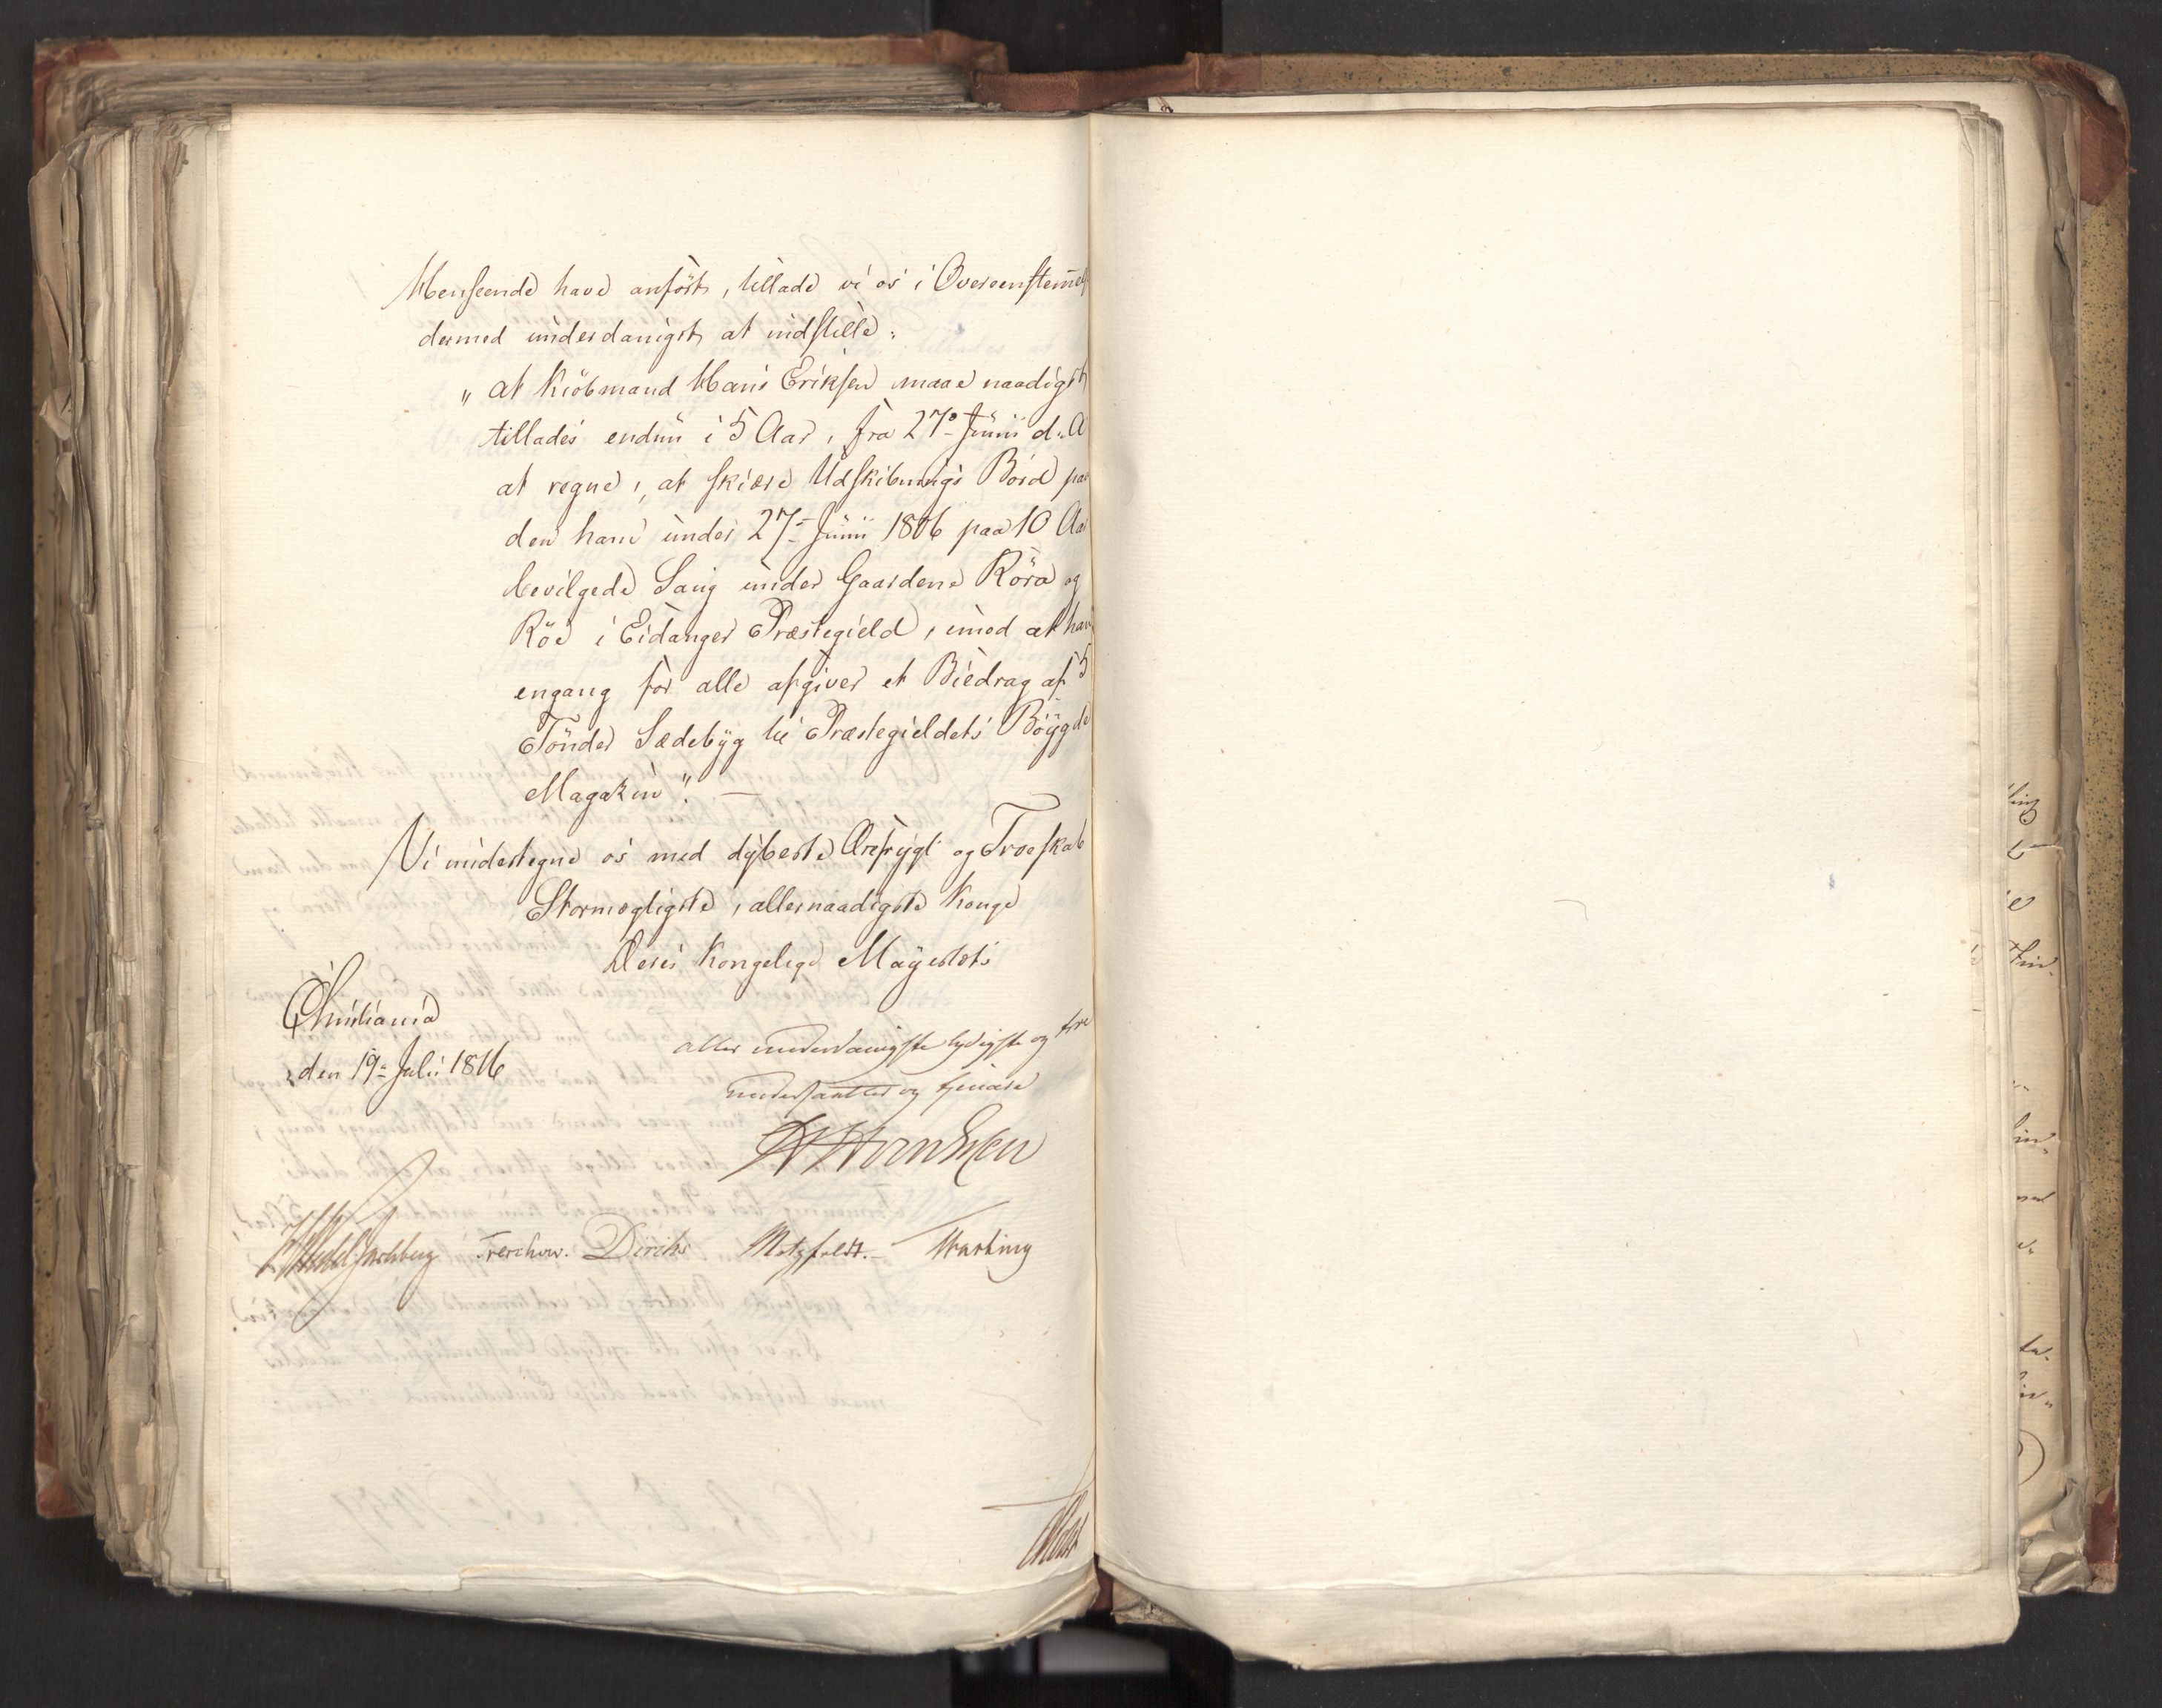 Henseende have anført, tillade vi os i Overeenstem̄els
dermed underdanigst at indstille:
„at Kiøbmand Hans Eriksen maae naadigst
tillades endnu i 5 Aar, fra 27de Junii d. A
at regne, at skiære Udskibnings Bord paa
den ham under 27de Junii 1806 paa 10 Aar
bevilgede Saug under Gaardene Röra og
Röe i Eidanger Præstegield, imod at han
engang for alle afgiver et Biedrag af 5
Tönder Sædebyg til Præstegieldets Böygde
Magazin”. —
Vi undertegne os med dybeste Ærefrygt og Troeskab
Stormægtigste, allernaadigste Konge
Deres Kongelige Majestæts
Christiania
den 19de Juli 1816
aller underdanigste lydigste og troe
undersaatter og tjenere
Treschow. Diriks Motzfeldt.